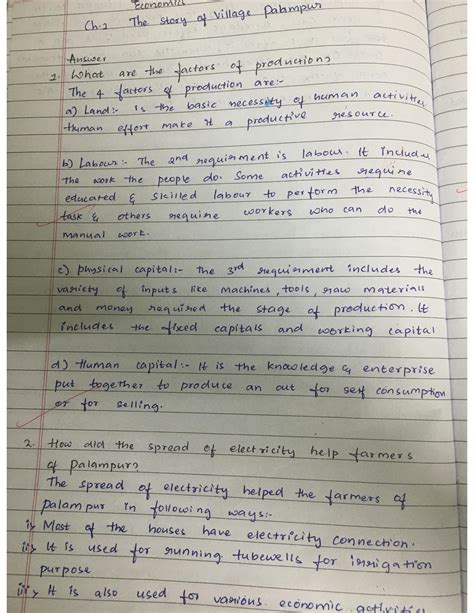 Economics
Ch-1 The Story of Village Palampur
Answer
1. What are the factors of production?
The 4 factors of production are:-
a) Land:- is the basic necessity of human activities
Human effort make it a productive resource.
b) Labour:- The 2nd requirment is labour. It includes
the work the people do. Some activities require
educated & skilled labour to perform the necessity
task & others require workers who can do the
manual work.
c) physical capital:- the 3rd requirment includes the
variety of inputs like machines, tools, raw materials
and money required the stage of production. It
includes the fixed capitals and working capital
d) Human capital:- It is the knowledge & enterprise
put together to produce an out for self consumption
or for selling.
2. How did the spread of electricity help farmers
of Palampur?
The spread of electricity helped the farmers of
Palampur in following ways:-
i) Most of the houses have electricity connection.
ii) It is used for running tubewells for irrigation
purpose
iii) It is also used for various economic activities